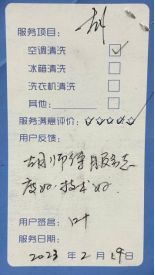 服务项目：
空调清洗 ☑
冰箱清洗 □
洗衣机清洗 □
其他：
服务满意评价：
用户反馈：
胡师傅服务态
度好.技术好.
用户签名：叶
服务日期：
2023年2月19日